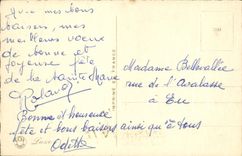 avec mes bons
baisers, mes
meilleurs vœux
de bonne et
joyeuse fête
de la Sainte Marie
Roland
Bonne et heureuse
fête et bons baisers ainsi qu'à tous
Odette
IMPRIMÉ EN FRANCE
Madame Bellevallée
rue de l'Avalasse
à Eu